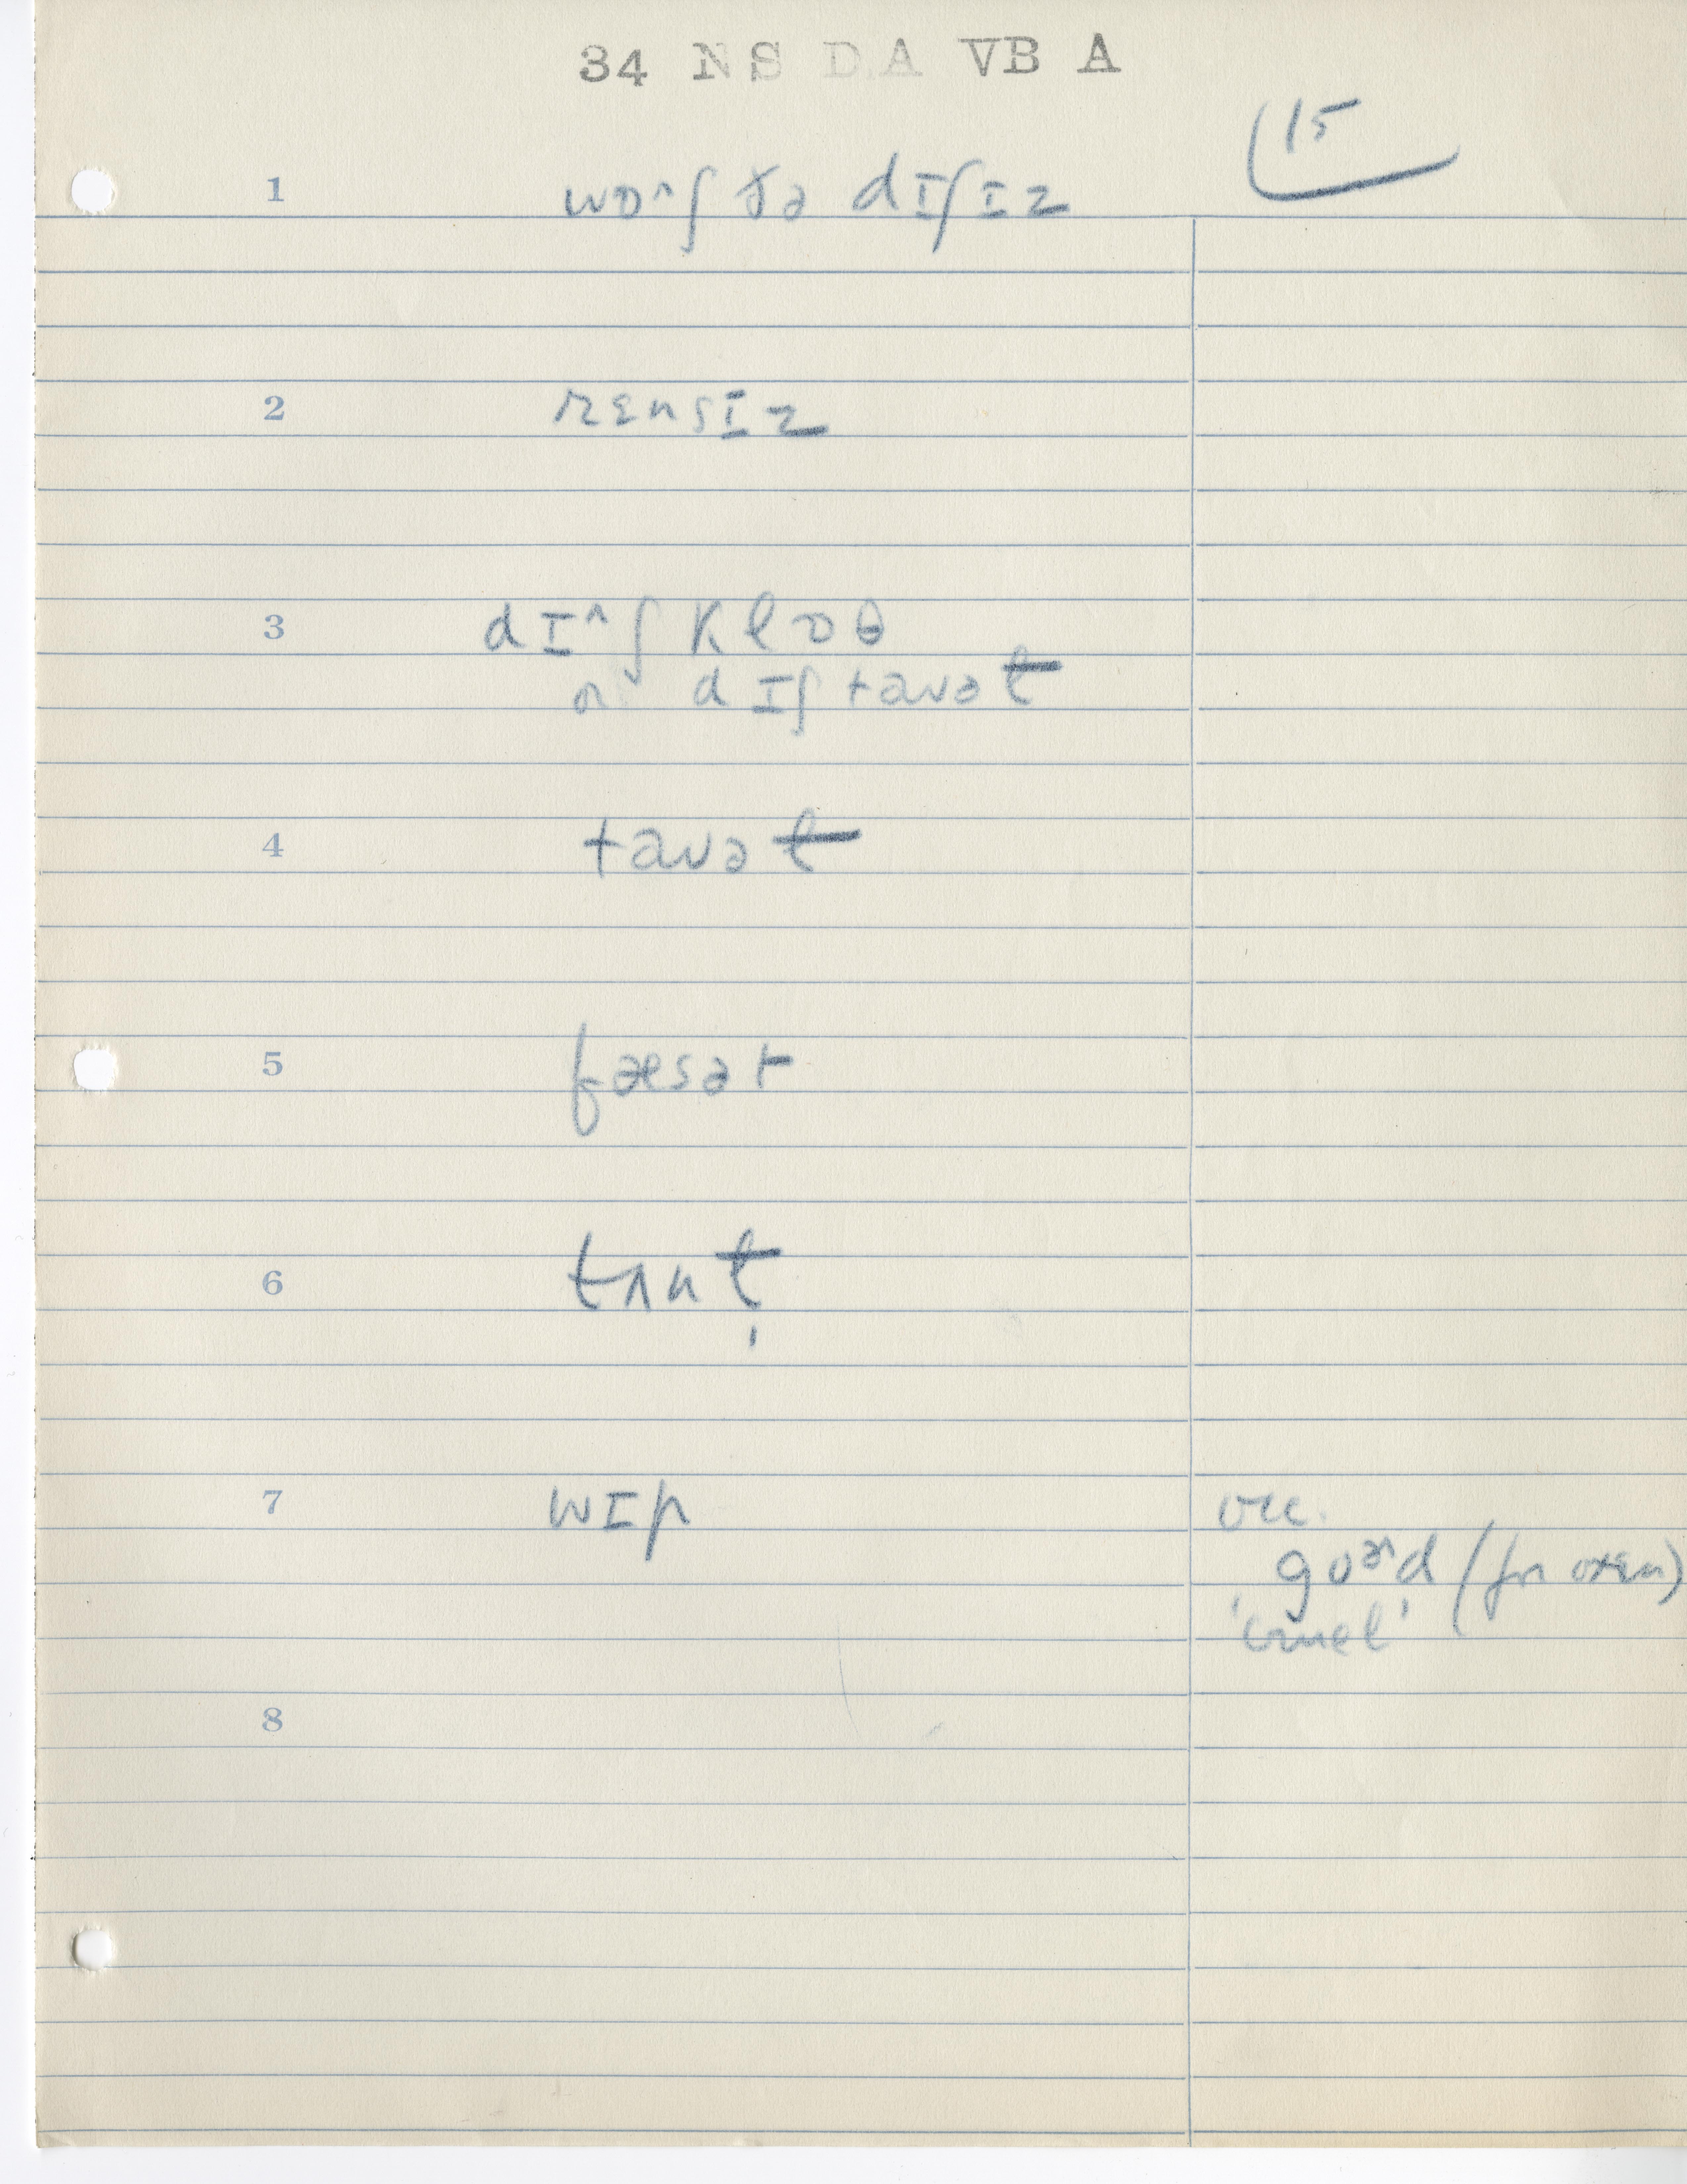 34 NS DA VB A
15
1 wɒ^ʃ ðə dɪʃɪz
2 rɛnsɪz
3 dɪ^ʃ klɒθ
or dɪʃ tauəɫ
4 tauəɫ
5 fæsət
6 trʌnɫ̩
7 wɪp
occ.
goɚd (for oxen)
'cruel'
8